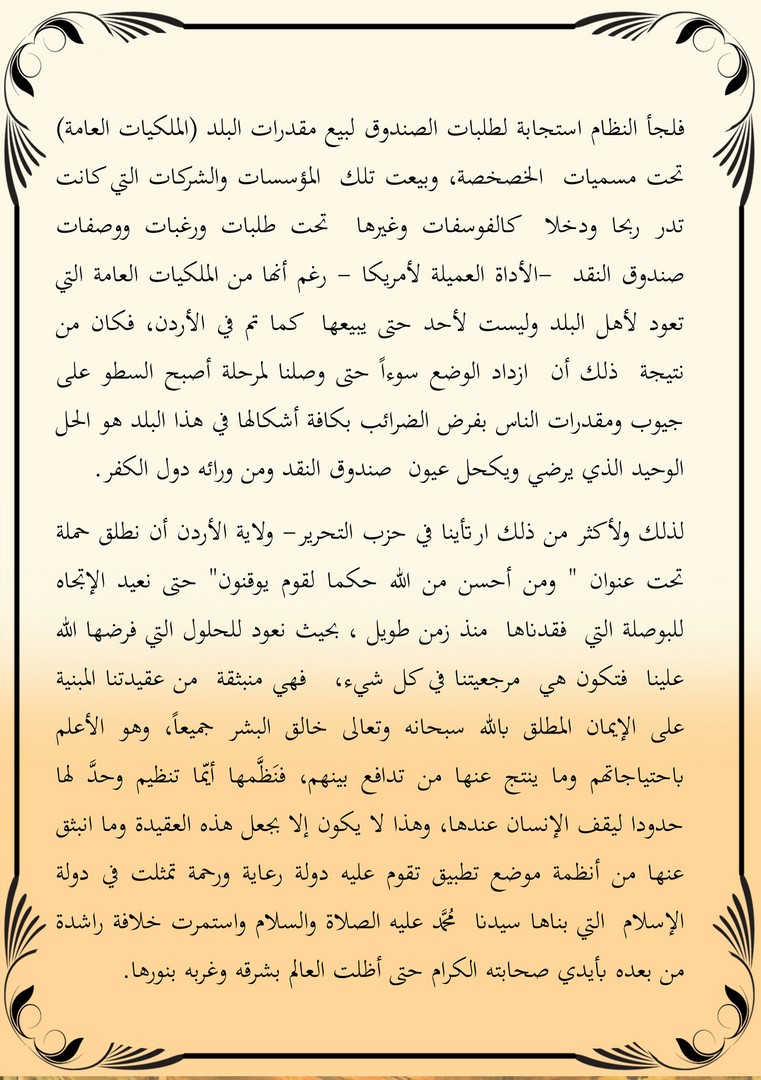 فلجأ النظام استجابة لطلبات الصندوق لبيع مقدرات البلد (الملكيات العامة)
تحت مسميات الخصخصة، وبيعت تلك المؤسسات والشركات التي كانت
تدر ربحا ودخلا كالفوسفات وغيرها تحت طلبات ورغبات ووصفات
صندوق النقد –الأداة العميلة لأمريكا – رغم أنها من الملكيات العامة التي
تعود لأهل البلد وليست لأحد حتى يبيعها كما تم في الأردن، فكان من
نتيجة ذلك أن ازداد الوضع سوءاً حتى وصلنا لمرحلة أصبح السطو على
جيوب ومقدرات الناس بفرض الضرائب بكافة أشكالها في هذا البلد هو الحل
الوحيد الذي يرضي ويكحل عيون صندوق النقد ومن ورائه دول الكفر.
لذلك ولأكثر من ذلك ارتأينا في حزب التحرير– ولاية الأردن أن نطلق حملة
تحت عنوان " ومن أحسن من الله حكما لقوم يوقنون" حتى نعيد الإتجاه
للبوصلة التي فقدناها منذ زمن طويل ، بحيث نعود للحلول التي فرضها الله
علينا فتكون هي مرجعيتنا في كل شيء، فهي منبثقة من عقيدتنا المبنية
على الإيمان المطلق بالله سبحانه وتعالى خالق البشر جميعاً، وهو الأعلم
باحتياجاتهم وما ينتج عنها من تدافع بينهم، فنَظَّمها أيّما تنظيم وحدَّ لها
حدودا ليقف الإنسان عندها، وهذا لا يكون إلا بجعل هذه العقيدة وما انبثق
عنها من أنظمة موضع تطبيق تقوم عليه دولة رعاية ورحمة تمثلت في دولة
الإسلام التي بناها سيدنا مُحَمَّد عليه الصلاة والسلام واستمرت خلافة راشدة
من بعده بأيدي صحابته الكرام حتى أظلت العالم بشرقه وغربه بنورها.